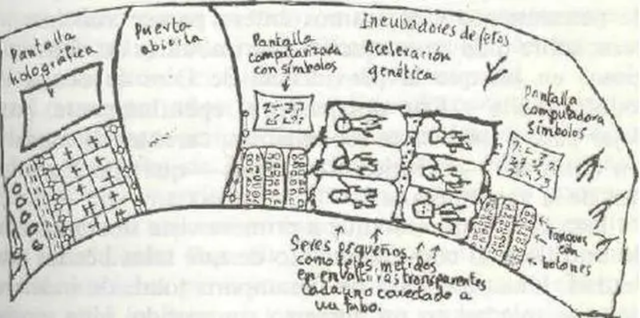 Pantalla
holográfica
Puerta
abierta
Pantalla
computarizada
con símbolos
Incubadores de fetos
Aceleración
genética
Pantalla
computadora
Símbolos
Tanques
con
botones
Seres pequeños
como fetos, metidos
en envolturas transparentes
cada uno conectado a
un tubo.